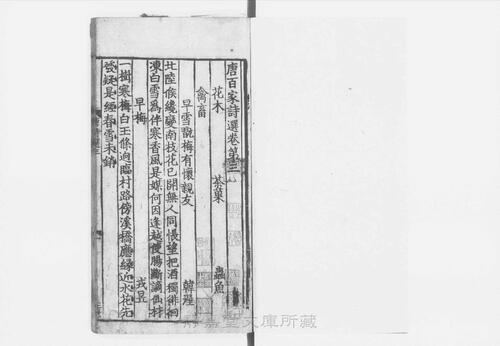 唐百家詩選卷第三
花木 茶菓 蟲魚
禽畜
早雪覩梅有懷親友 韓偓
北陸候纔變南枝花已開無人同悵望把酒獨徘徊
凍白雪爲伴寒香風是媒何因逢越使腸斷謫仙材
早梅 戎昱
一樹寒梅白玉條迥臨村路傍溪橋應緣近水花先
發疑是經春雪未銷
靜嘉堂文庫所藏